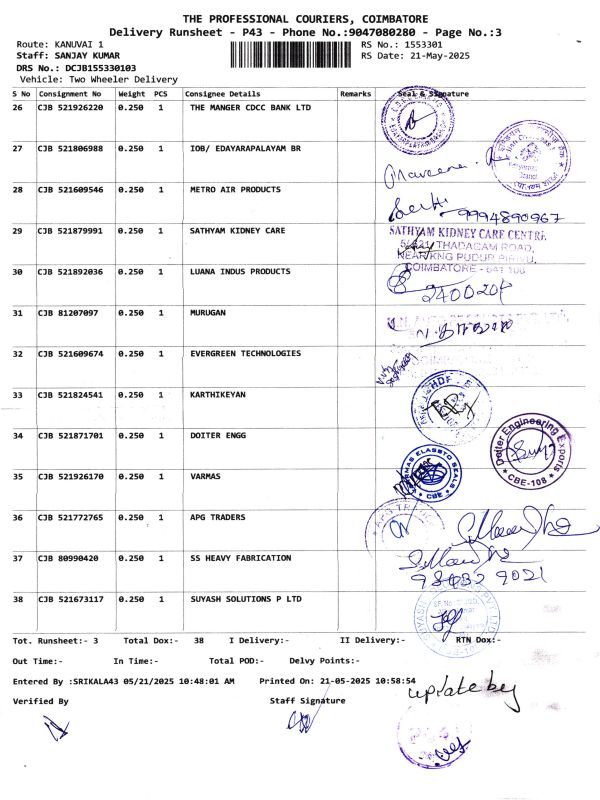 THE PROFESSIONAL COURIERS, COIMBATORE
Delivery Runsheet - P43 - Phone No.:9047080280 - Page No.:3
Route: KANUVAI 1 RS No.: 1553301
Staff: SANJAY KUMAR RS Date: 21-May-2025
DRS No.: DCJB155330103
Vehicle: Two Wheeler Delivery
S No Consignment No Weight PCS Consignee Details Remarks Seal & Signature
26 CJB 521926220 0.250 1 THE MANGER CDCC BANK LTD
27 CJB 521806988 0.250 1 IOB/ EDAYARAPALAYAM BR
28 CJB 521609546 0.250 1 METRO AIR PRODUCTS
9994890967
29 CJB 521879991 0.250 1 SATHYAM KIDNEY CARE
SATHYAM KIDNEY CARE CENTRE
THADAGAM ROAD,
COIMBATORE
30 CJB 521892036 0.250 1 LUANA INDUS PRODUCTS
31 CJB 81207097 0.250 1 MURUGAN
32 CJB 521609674 0.250 1 EVERGREEN TECHNOLOGIES
33 CJB 521824541 0.250 1 KARTHIKEYAN
34 CJB 521871701 0.250 1 DOITER ENGG
Doiter Engineering Exports
CBE-108
35 CJB 521926170 0.250 1 VARMAS
ELASSTO SEALS
CBE
36 CJB 521772765 0.250 1 APG TRADERS
37 CJB 80990420 0.250 1 SS HEAVY FABRICATION
38 CJB 521673117 0.250 1 SUYASH SOLUTIONS P LTD
Tot. Runsheet:- 3 Total Dox:- 38 I Delivery:- II Delivery:- RTN Dox:-
Out Time:- In Time:- Total POD:- Delvy Points:-
Entered By :SRIKALA43 05/21/2025 10:48:01 AM Printed On: 21-05-2025 10:58:54
update by
Verified By Staff Signature